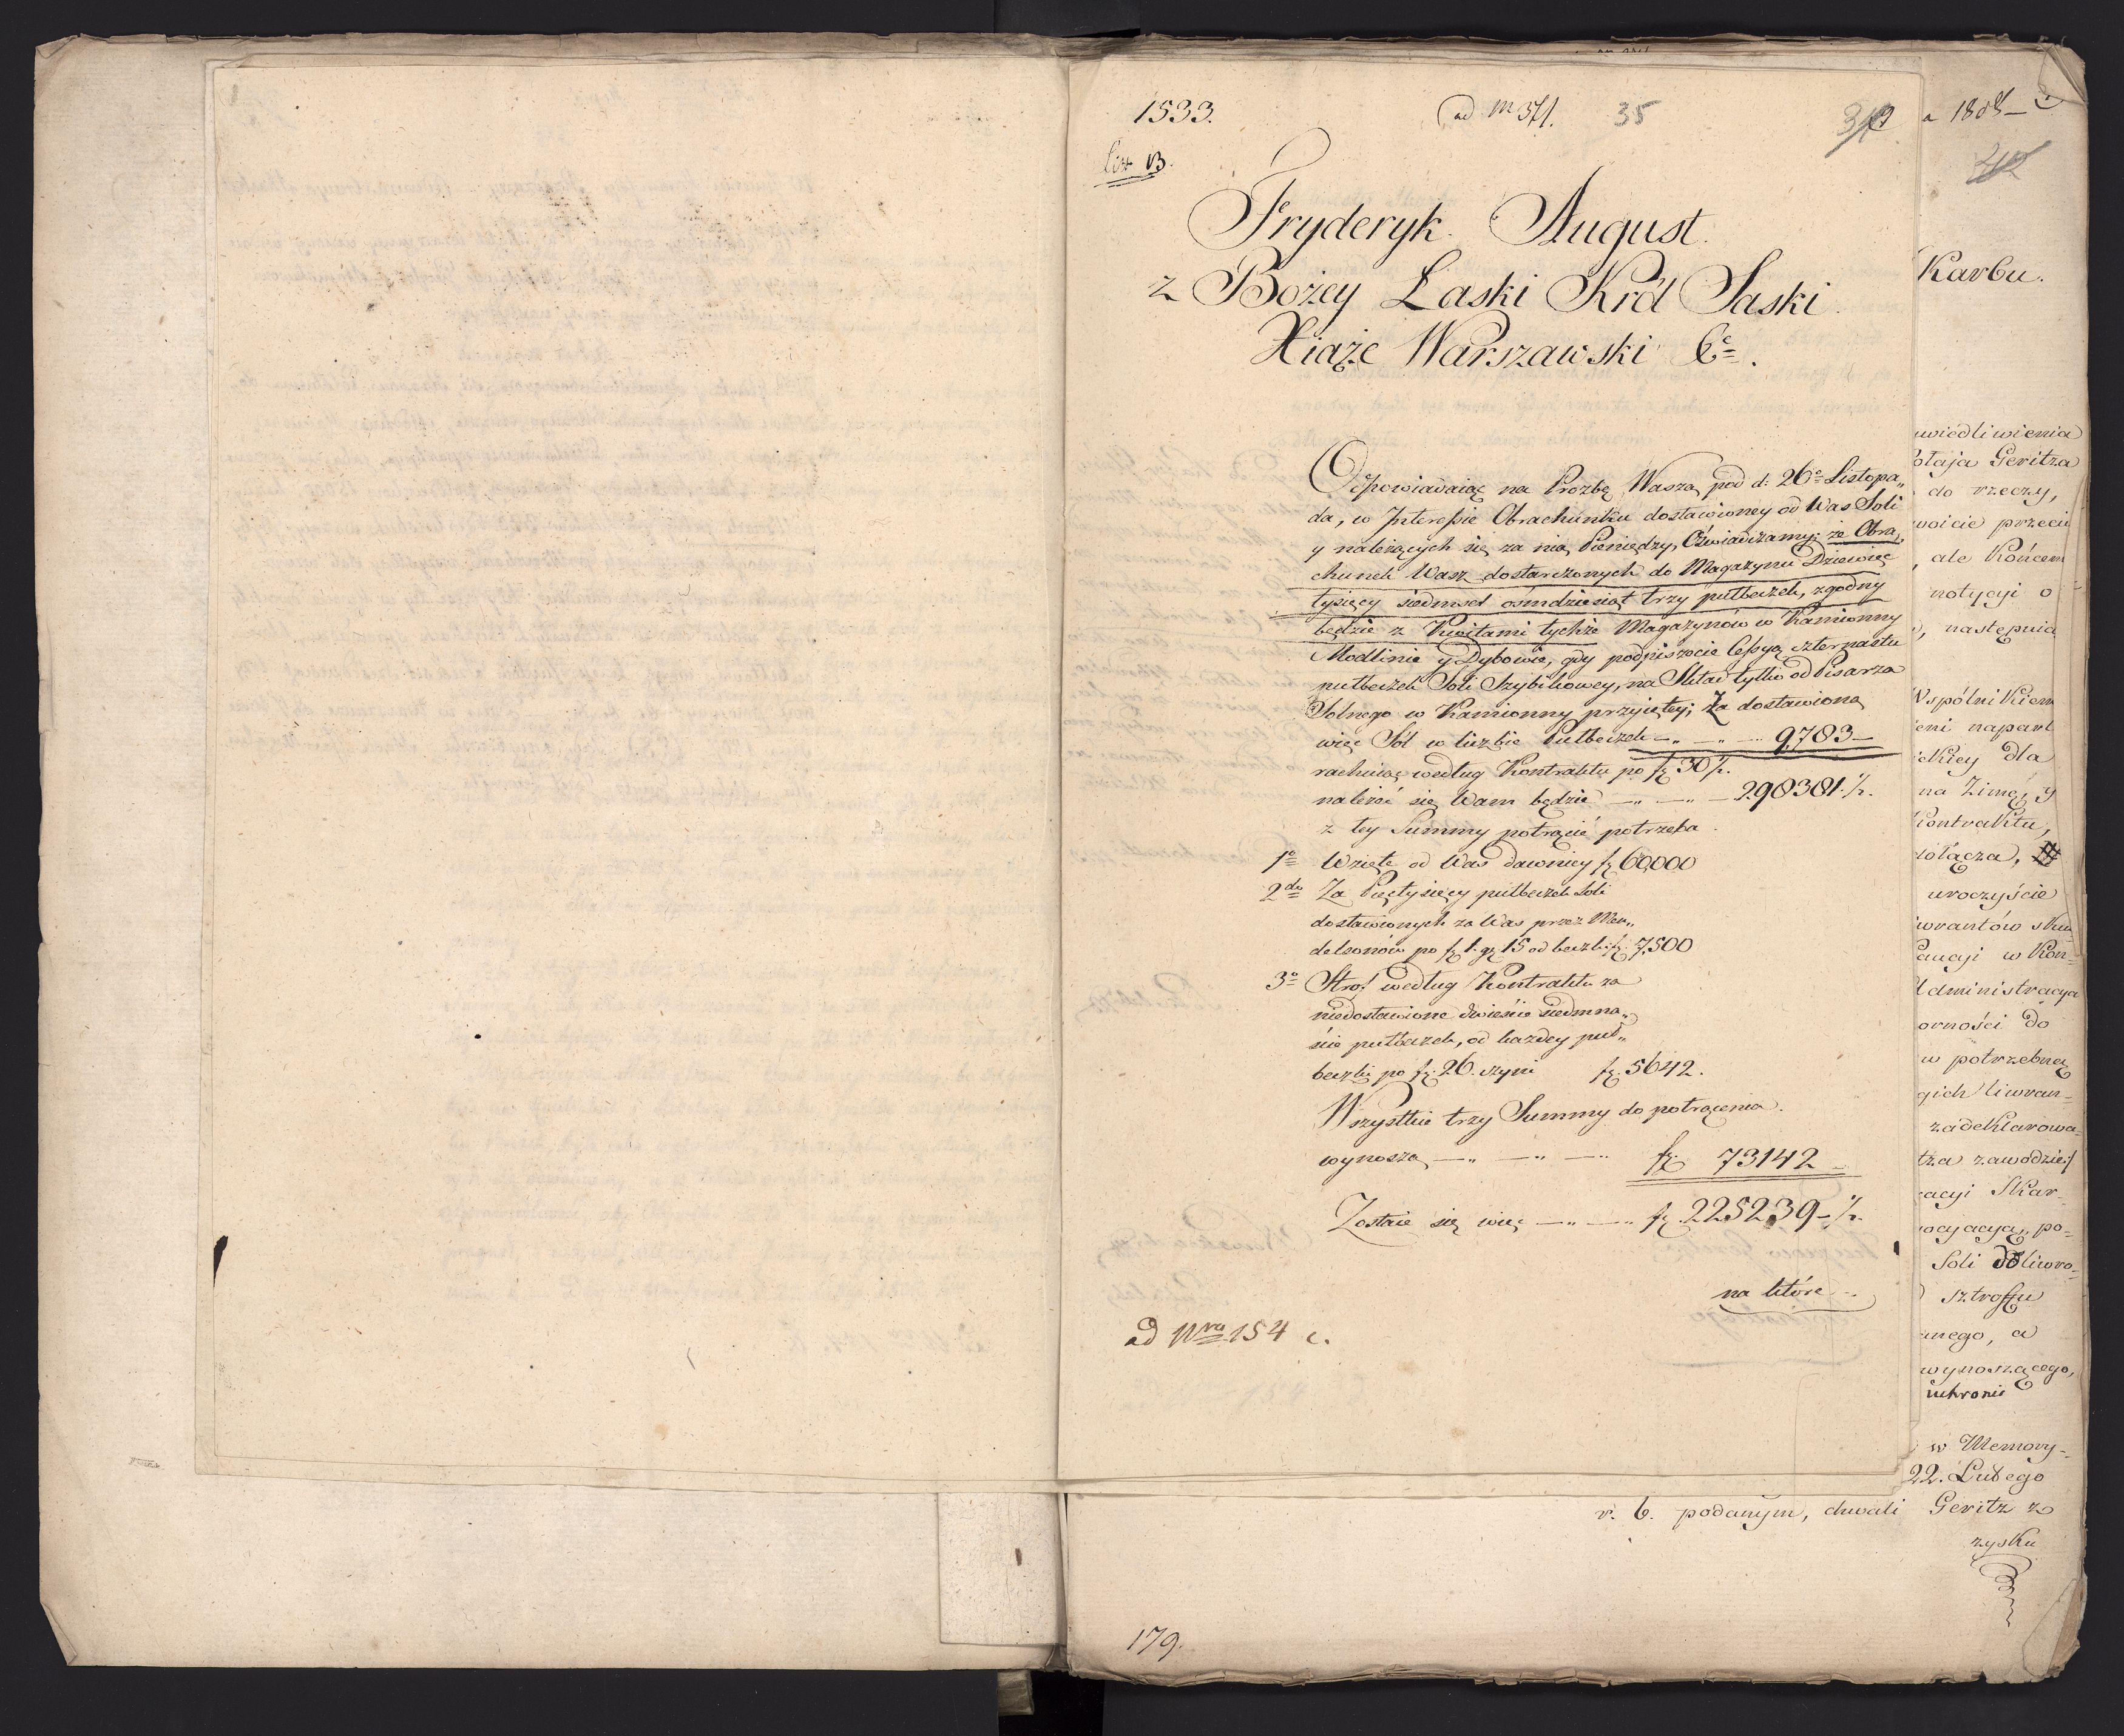 1533.
ad nr 371. 35
Lit B.
Fryderyk August
z Bożey Łaski Król Saski
Xiąże Warszawski &c.
Odpowiadaiąc na Prozbę Waszą pod d: 26e Listopa„
da, w Interessie Obrachunku dostawioney od Was Soli
y należących się za nią Pieniędzy, Oświadczamy: że Obra„
chunek Wasz dostarczonych do Magazynu Dziewięć
tysięcy siedmset ośmdziesiąt trzy putbeczek, zgodny
będzie z Kwitami tychże Magazynów w Kamionny
Modlinie y Dybowie, gdy podpiszecie Cessyą czternastu
putbeczek Soli Szybikowey, na Skład tylko od Pisarza
Solnego w Kamionny przyiętey; Za dostawioną
więc Sól w liczbie Putbeczek —„— —„— 9,783—
rachuiąc według Kontraktu po fz 30½.
należeć się Wam będzie —„— —„— 298381.½.
z tey Summy potrącić potrzeba.
1o Wzięte od Was dawniey fz 60,000
2do Za Pięćtysięcy putbeczek Soli
dostawionych za Was przez Men„
delsonów po fz 1. gr 15 od beczki fz. 7,500
3o Strof według Kontraktu za
niedostawione dwieście siedmna„
ście putbeczek, od każdey put„
beczki po fz. 26. czyni fz. 5642.
Wszystkie trzy Summy do potrącenia
wynoszą —„— —„— fz 73142—
Zostaie się więc —„— —„— fz 225239—½.
na które
ad Nru 154 c.
a 1808—
Karbu.
wiedliwienia
ołaja Geritza
do rzeczy,
woicie przeciw
, ale Końcem
notycyi o
, następnie
Wspólnikiem
eni napart
ckiey dla
na Zimę, y
Kontraktu,
ołącza,
uroczyście
iwrantów sku
Caucyi w Kon=
Administracya
orności do
w potrzebney
gich liwran-
zadeklarowa-
tza zawodzie/
acyi Skar-
ocyacyą, po-
Soli do liwro-
sztroffu
nego, a
wynoszącego,
uchronie
w Memory-
22. Lutego
r. b. podanym, chwali Geritz z
zysku
179.